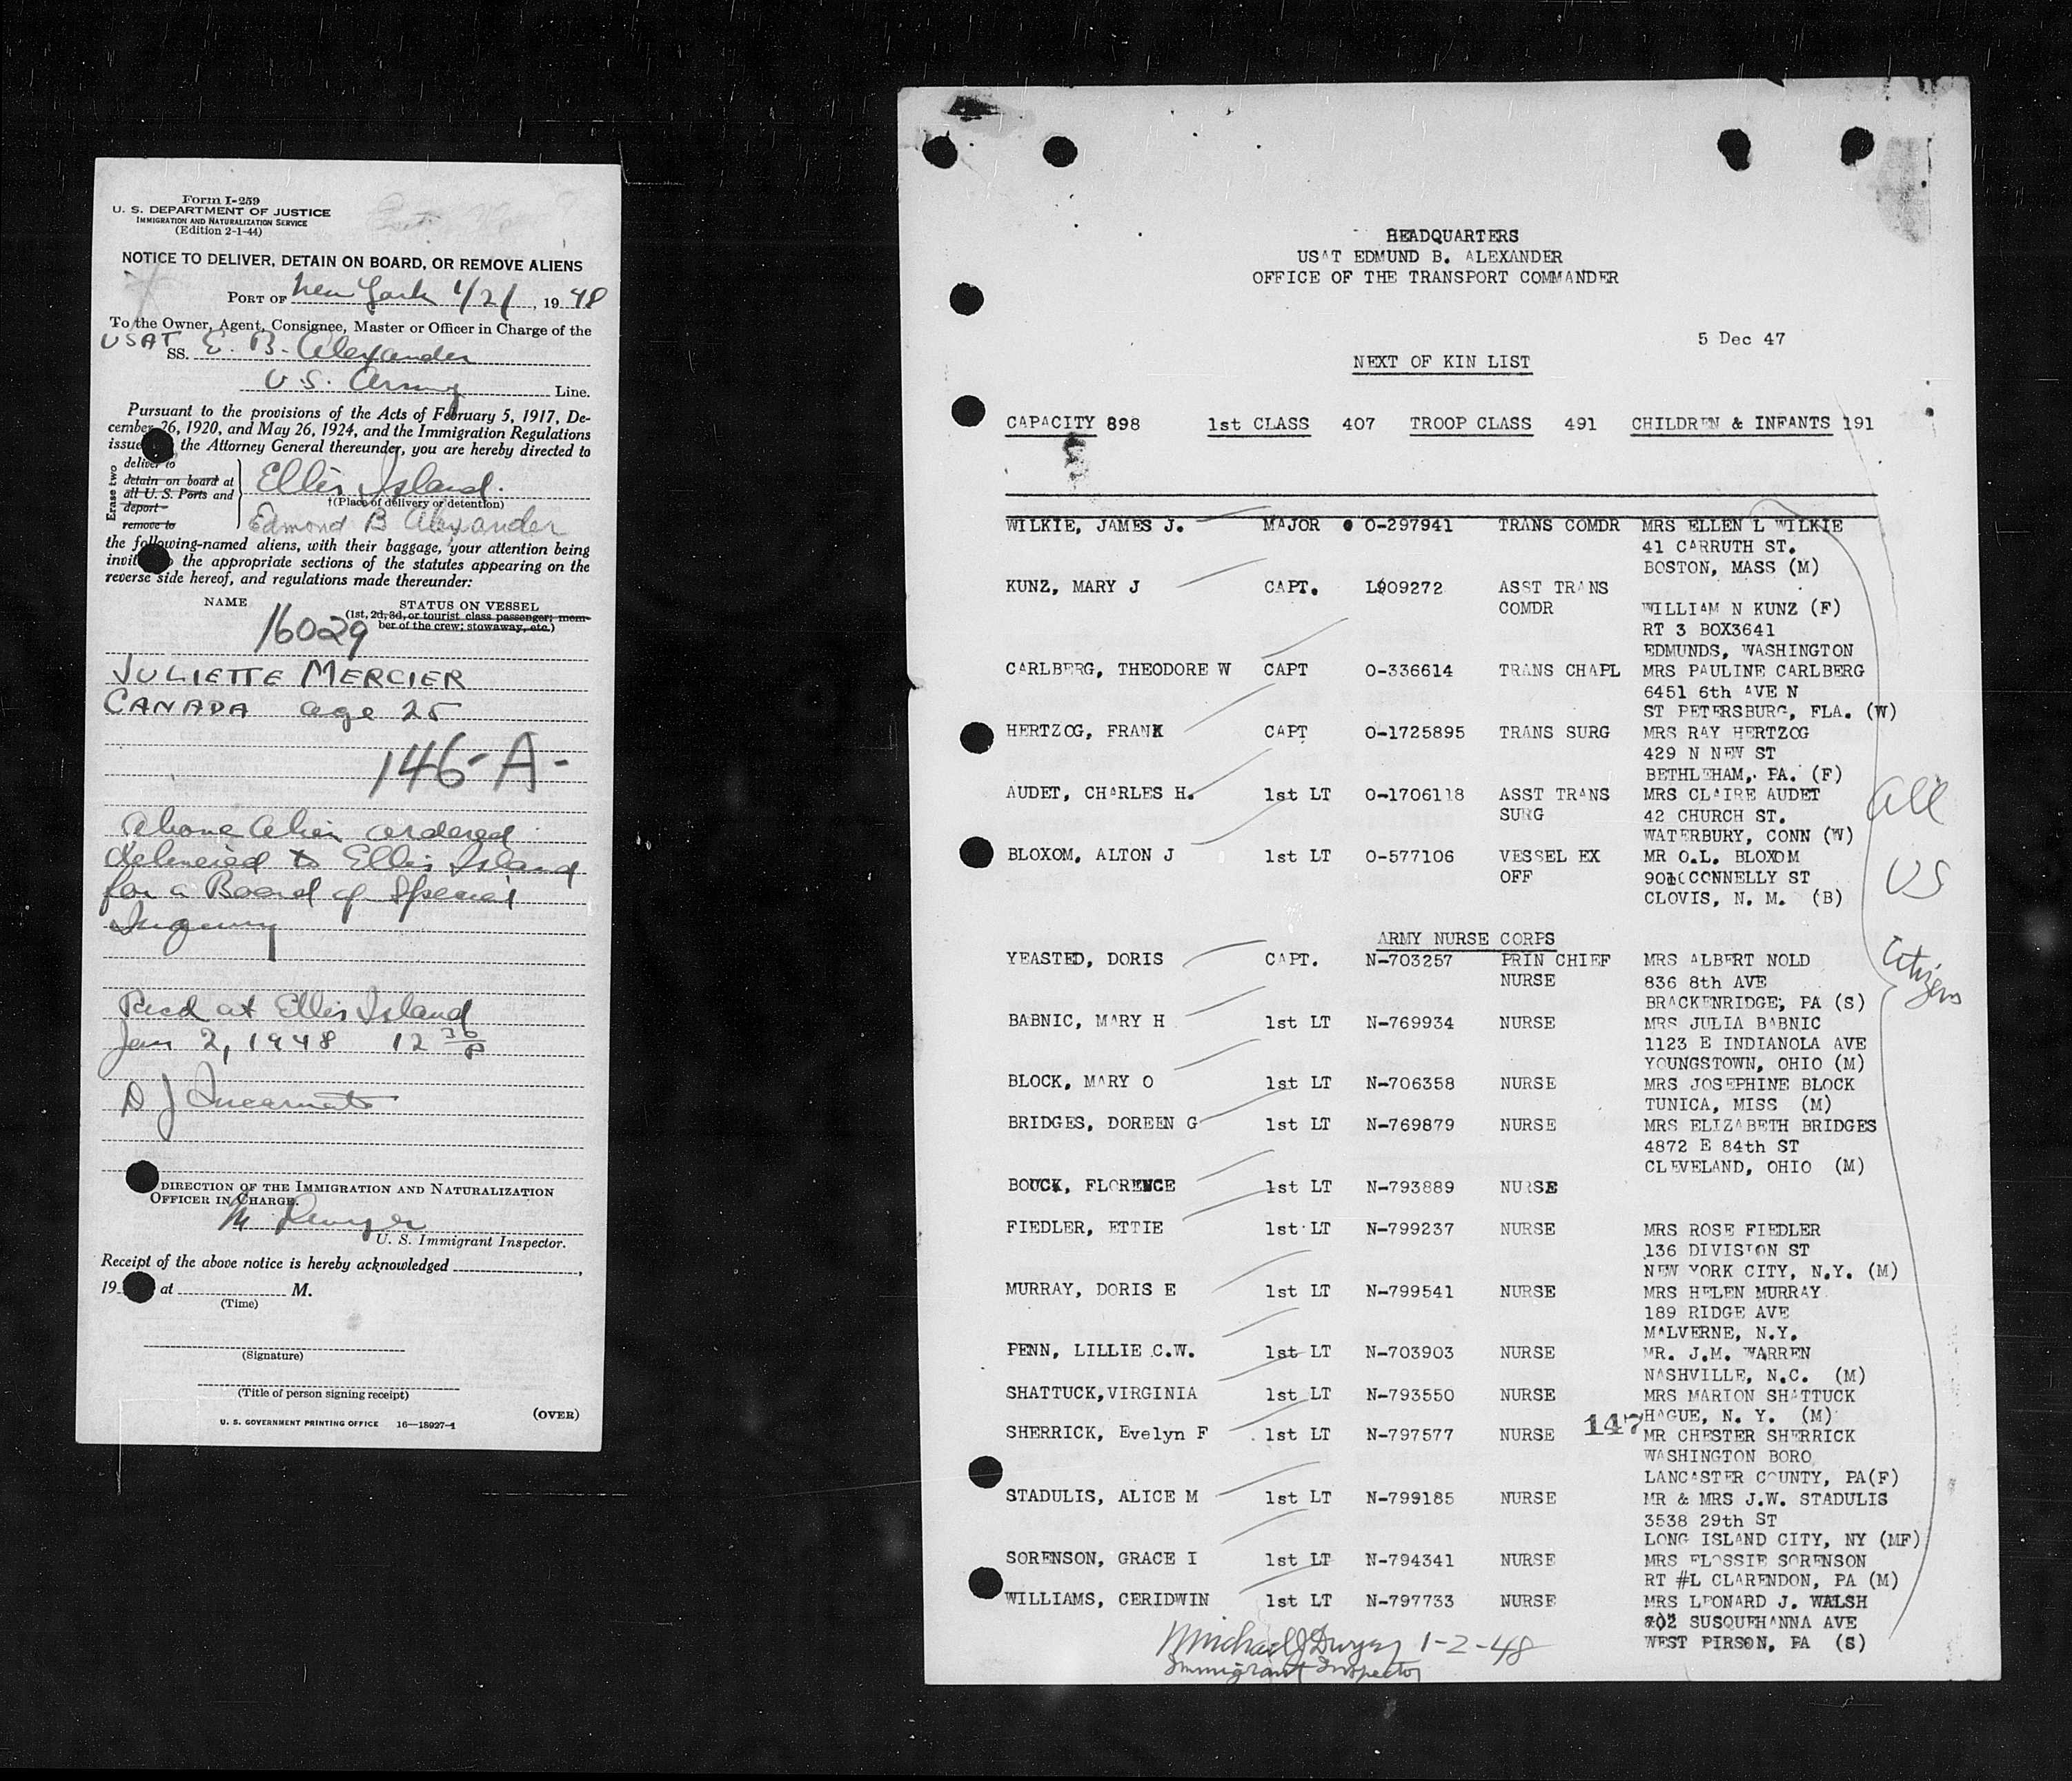 Form I-259
U. S. DEPARTMENT OF JUSTICE
IMMIGRATION AND NATURALIZATION SERVICE
(Edition 2-1-44)
NOTICE TO DELIVER, DETAIN ON BOARD, OR REMOVE ALIENS
PORT OF New York 1/2/, 1948
To the Owner, Agent, Consignee, Master or Officer in Charge of the
USAT SS. E. B. Alexander
U.S. Army Line.
Pursuant to the provisions of the Acts of February 5, 1917, De-
cember 26, 1920, and May 26, 1924, and the Immigration Regulations
issue the Attorney General thereunder, you are hereby directed to
Erase two
deliver to
detain on board at
all U. S. Ports and
deport
remove to
Ellis Island.
†(Place of delivery or detention)
Edmond B Alexander
the following-named aliens, with their baggage, your attention being
invit the appropriate sections of the statutes appearing on the
reverse side hereof, and regulations made thereunder:
NAME STATUS ON VESSEL
(1st, 2d, 3d, or tourist class passenger; mem-
ber of the crew; stowaway, etc.)
16029
JULIETTE MERCIER
CANADA age 25
146-A-
Above alien ordered
delivered to Ellis Island
for a Board of Special
Inquiry
Recd at Ellis Island
Jan 2, 1948 12 30 P
D J
DIRECTION OF THE IMMIGRATION AND NATURALIZATION
OFFICER IN CHARGE.
M Dwyer
U. S. Immigrant Inspector.
Receipt of the above notice is hereby acknowledged ,
19 at M.
(Time)
(Signature)
(Title of person signing receipt)
U. S. GOVERNMENT PRINTING OFFICE 16—18927-1
(OVER)
HEADQUARTERS
USAT EDMUND B. ALEXANDER
OFFICE OF THE TRANSPORT COMMANDER
5 Dec 47
NEXT OF KIN LIST
CAPACITY 898 1st CLASS 407 TROOP CLASS 491 CHILDREN & INFANTS 191
WILKIE, JAMES J. MAJOR O-297941 TRANS COMDR MRS ELLEN L WILKIE
41 CARRUTH ST.
BOSTON, MASS (M)
KUNZ, MARY J CAPT. L909272 ASST TRANS
COMDR WILLIAM N KUNZ (F)
RT 3 BOX3641
EDMUNDS, WASHINGTON
CARLBERG, THEODORE W CAPT O-336614 TRANS CHAPL MRS PAULINE CARLBERG
6451 6th AVE N
ST PETERSBURG, FLA. (W)
HERTZOG, FRANK CAPT O-1725895 TRANS SURG MRS RAY HERTZOG
429 N NEW ST
BETHLEHAM, PA. (F)
AUDET, CHARLES H. 1st LT O-1706118 ASST TRANS MRS CLAIRE AUDET
SURG 42 CHURCH ST.
WATERBURY, CONN (W)
BLOXOM, ALTON J 1st LT O-577106 VESSEL EX MR O.L. BLOXOM
OFF 901 CONNELLY ST
CLOVIS, N. M. (B)
All
US
Citizens
ARMY NURSE CORPS
YEASTED, DORIS CAPT. N-703257 PRIN CHIEF MRS ALBERT NOLD
NURSE 836 8th AVE
BRACKENRIDGE, PA (S)
BABNIC, MARY H 1st LT N-769934 NURSE MRS JULIA BABNIC
1123 E INDIANOLA AVE
YOUNGSTOWN, OHIO (M)
BLOCK, MARY O 1st LT N-706358 NURSE MRS JOSEPHINE BLOCK
TUNICA, MISS (M)
BRIDGES, DOREEN G 1st LT N-769879 NURSE MRS ELIZABETH BRIDGES
4872 E 84th ST
CLEVELAND, OHIO (M)
BOUCK, FLORENCE 1st LT N-793889 NURSE
FIEDLER, ETTIE 1st LT N-799237 NURSE MRS ROSE FIEDLER
136 DIVISION ST
NEW YORK CITY, N.Y. (M)
MURRAY, DORIS E 1st LT N-799541 NURSE MRS HELEN MURRAY
189 RIDGE AVE
MALVERNE, N.Y.
PENN, LILLIE C.W. 1st LT N-703903 NURSE MR. J.M. WARREN
NASHVILLE, N.C. (M)
SHATTUCK,VIRGINIA 1st LT N-793550 NURSE MRS MARION SHATTUCK
147 HAGUE, N. Y. (M)
SHERRICK, Evelyn F 1st LT N-797577 NURSE MR CHESTER SHERRICK
WASHINGTON BORO
LANCASTER COUNTY, PA(F)
STADULIS, ALICE M 1st LT N-799185 NURSE MR & MRS J.W. STADULIS
3538 29th ST
LONG ISLAND CITY, NY (MF)
SORENSON, GRACE I 1st LT N-794341 NURSE MRS FLOSSIE SORENSON
RT #L CLARENDON, PA (M)
WILLIAMS, CERIDWIN 1st LT N-797733 NURSE MRS LEONARD J. WALSH
802 SUSQUEHANNA AVE
WEST PIRSON, PA (S)
Michael J Dwyer 1-2-48
Immigrant Inspector